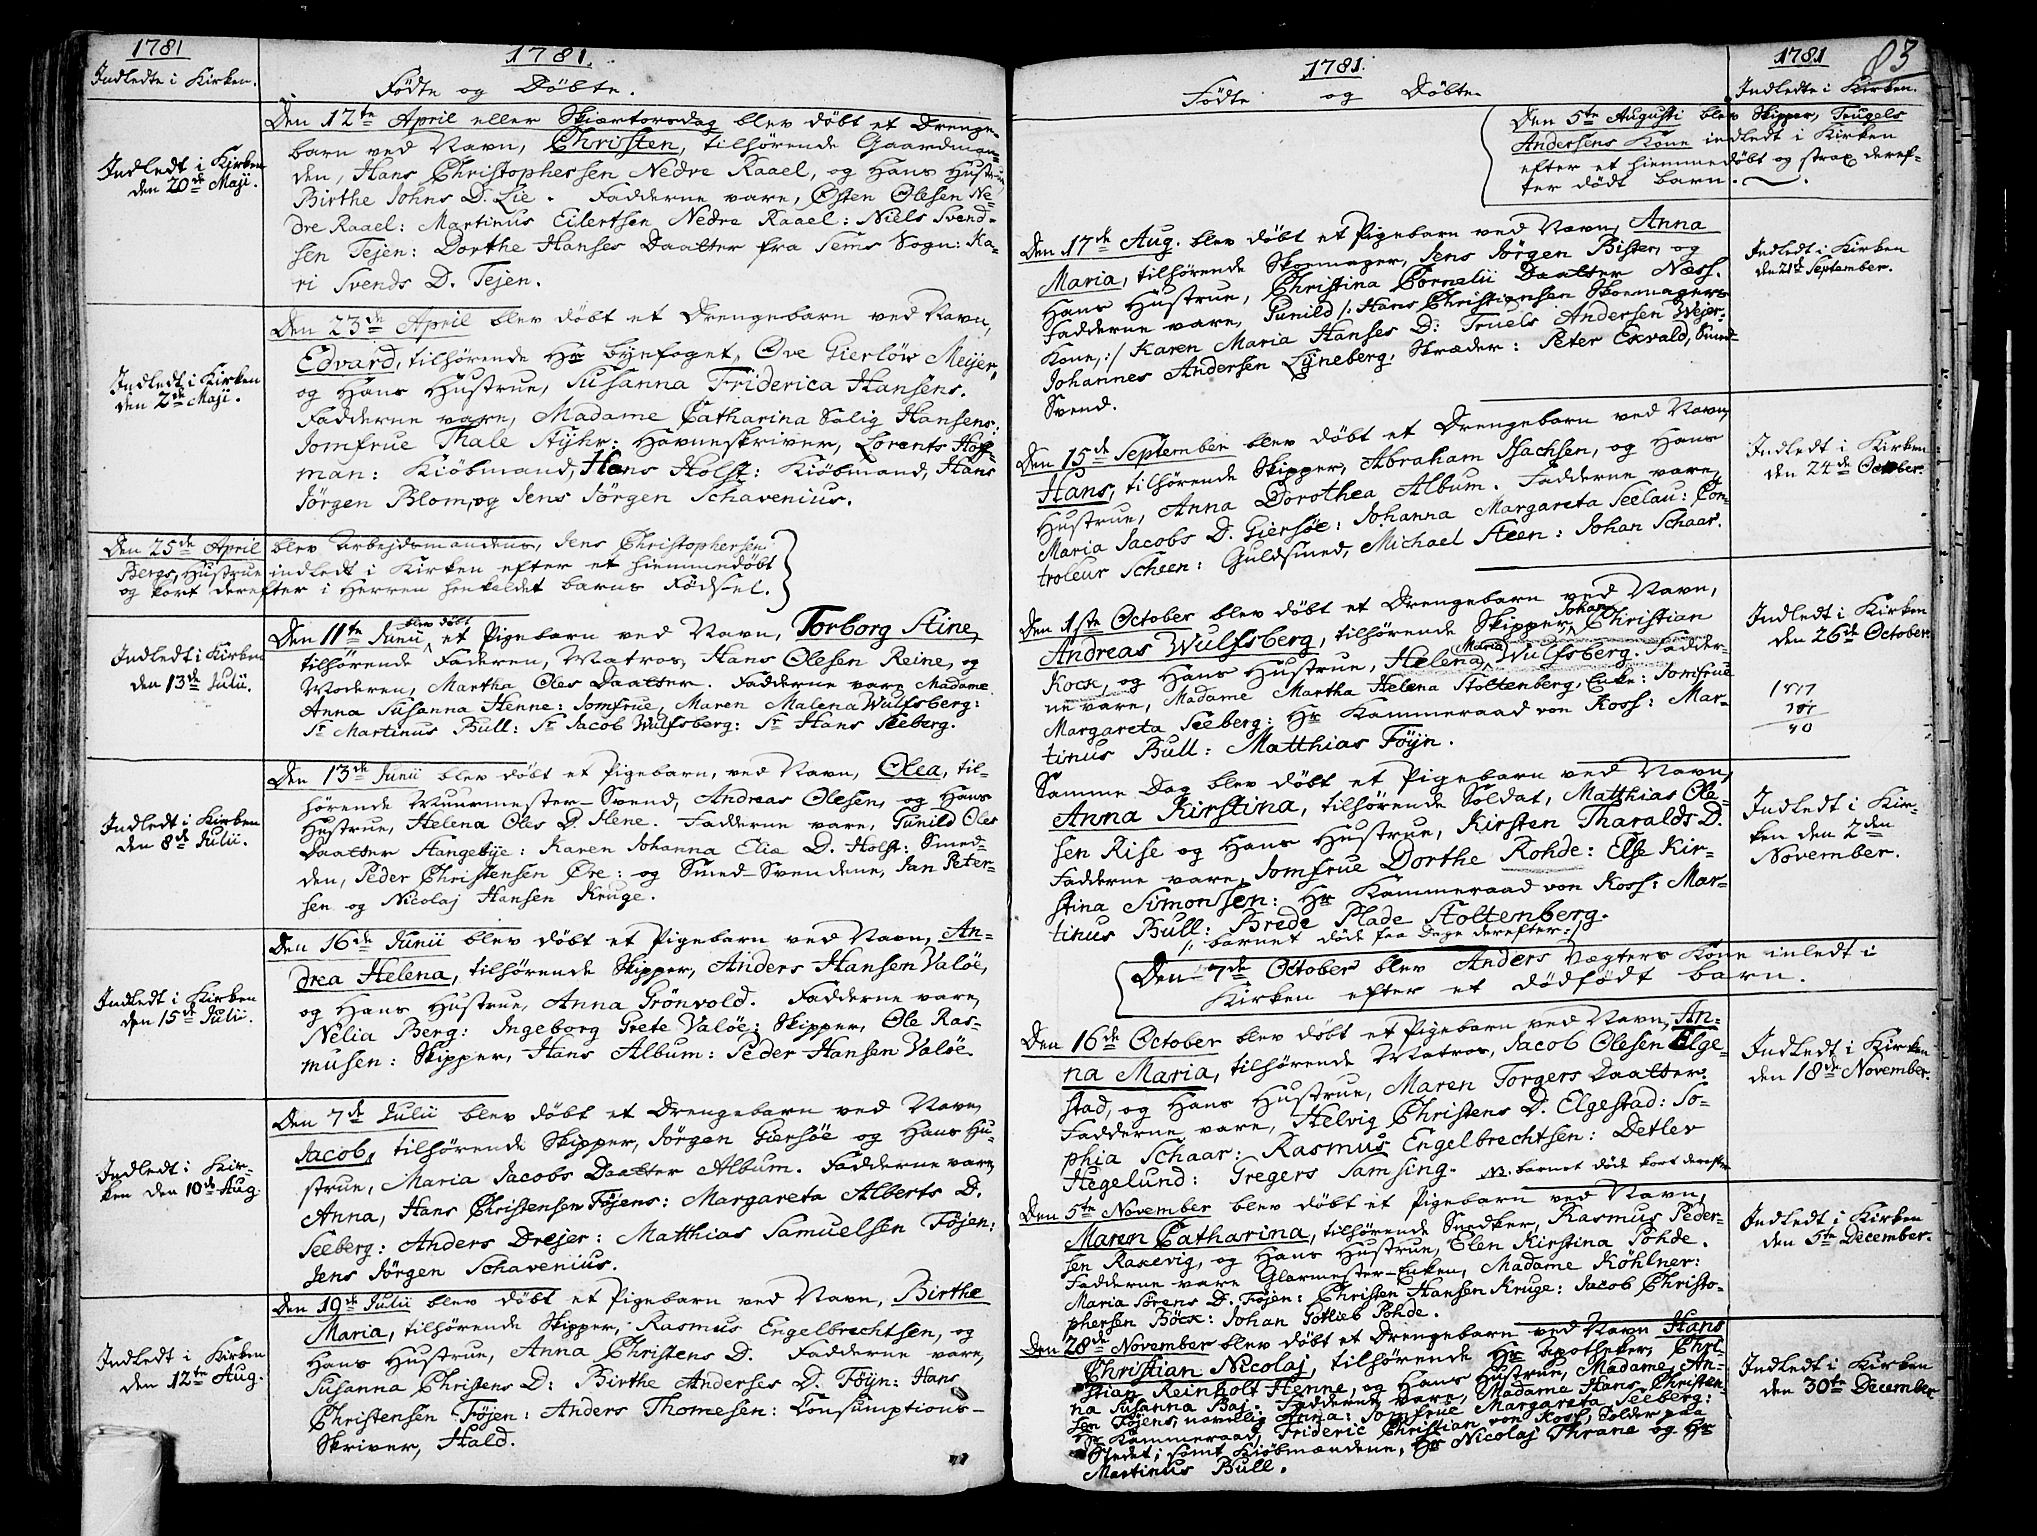 1781
Indledte i Kirken.
1781.
Fødte og Døbte.
Den 12te April eller Skiærtorsdag blev døbt et Drenge-
barn ved Navn, Christen, tilhørende Gaardman-
den, Hans Christophersen Nedre Raael, og Hans Hustru
Birthe Johns D. Lie. Fadderne vare, Østen Olesen Ne-
dre Raael: Martinus Eilertsen Nedre Raael: Niels Svend-
sen Tejen: Dorthe Hanses Daatter fra Sems Sogn: Ka-
ri Svends D. Tejen.
Indledt i Kirken
den 20de Maji.
Den 23de April blev døbt et Drengebarn ved Navn,
Edvard, tilhørende Hr Byefoget, Ove Gierløw Meyer,
og Hans Hustrue, Susanna Friderica Hansøns.
Fadderne vare, Madame Catharina Salig Hansens:
Jomfrue Thale Styhr: Havneskriver, Lorents Hoff-
man: Kiøbmand, Hans Holst: Kiøbmand, Hans
Jørgen Blom, og Jens Jørgen Schavenius.
Indledt i Kirken
den 2de Maji.
Den 25de April blev Arbejdsmandens, Jens Christophersen
Bergs, Hustrue indledt i Kirken efter et hiemmedøbt
og kort derefter i Herren henkaldet barns Fødsel.
Den 11te Junii blev døbt et Pigebarn ved Navn, Torborg Stine,
tilhørende Faderen, Matros, Hans Olesen Reine, og
Moderen, Martha Oles Daatter. Fadderne vare Madame
Anna Susanna Henne: Jomfrue, Maren Malena Wulfsberg:
Sr Martinus Bull: Sr Jacob Wulfsberg: Sr Hans Seeberg.
Indledt i Kirken
den 13de Julii.
Den 13de Junii blev døbt et Pigebarn, ved Navn, Olea, til-
hørende Muurmester-Svend, Andreas Olesen, og Hans
Hustrue, Helena Oles D. Ilene. Fadderne vare, Gunild Oles
Daatter Stangebye: Karen Johanna Eliæ D. Holst: Smed-
den, Peder Christensen Øre: og Smed-Svendene, Jan Peter-
sen og Nicolaj Hansen Kruge.
Indledt i Kirken
den 8de Julii.
Den 16de Junii blev døbt et Pigebarn ved Navn, An-
drea Helena, tilhørende Skipper, Anders Hansen Valøe,
og Hans Hustrue, Anna Grönvold. Fadderne vare,
Nelia Berg: Ingeborg Grete Valøe: Skipper, Ole Ras-
musen: Skipper, Hans Album: Peder Hansen Valøe.
Indledt i Kirken
den 15de Julii.
Den 7de Julii blev døbt et Drengebarn ved Navn,
Jacob, tilhørende Skipper, Jørgen Giersøe og Hans Hu-
strue, Maria Jacobs Daatter Album. Fadderne vare,
Anna, Hans Christensen Föjens: Margareta Alberts D.
Seeberg: Anders Drejer: Matthias Samuelsen Föjen:
Jens Jörgen Schavenius.
Indledt i Kir-
ken den 10de Aug.
Den 19de Julii blev døbt et Pigebarn ved Navn, Birthe
Maria, tilhørende Skipper, Rasmus Engelbrechtsen, og
Hans Hustrue, Anna Christens D. Fadderne vare,
Susanna Christens D: Birthe Anderses D. Föyn: Hans
Christensen Föjen: Anders Thomesen: Consumptions-
Skriver, Hald.
Indledt i Kirken
den 12te Aug.
1781.
Fødte og Døbte
1781
83
Indledte i Kirken.
Den 5te Augusti blev Skipper, Trugels
Andersens Kone indledt i Kirken
efter et hiemmedøbt og strax deref-
ter dødt barn.
Den 17de Aug. blev døbt et Pigebarn ved Navn, Anna
Maria, tilhørende Skoemager, Jens Jörgen Bister, og
Hans Hustrue, Christina Cornelii Daatter Næss.
Fadderne vare, Gunild /: Hans Christiansen Skoemagers
Kone, :/ Karen Maria Hanses D: Truels Andersen Wejer:
Johannes Andersen Lyneberg, Skræder: Peter Exvald, Smed-
Svend.
Indledt i Kirken
den 21de September.
Den 15de September blev døbt et Drengebarn ved Navn,
Hans, tilhørende Skipper, Abraham Isachsen, og Hans
Hustrue, Anna Dorothea Album. Fadderne vare,
Maria Jacobs D. Giersøe: Johanna Margareta Seelau: Con-
troleur Scheen: Guldsmed, Michael Steen: Johan Schaar.
Indledt i Kirken
den 24de October.
Den 1ste October blev døbt et Drengebarn ved Navn,
Andreas Wulfsberg, tilhørende Skipper, Johan Christian
Kock, og Hans Hustrue, Helena Maria Wulfsberg. Fadder-
ne vare, Madame Martha Helena Stoltenberg, Enke: Jomfrue
Margareta Seeberg: Hr Kammeraad von Koss: Mar-
tinus Bull: Matthias Föyn.
Indledt i Kirken
den 26de October.
Samme Dag blev døbt et Pigebarn ved Navn,
Anna Kirstina, tilhørende Soldat, Matthias Ole-
sen Rise og Hans Hustrue, Kirsten Tharalds D.
Fadderne vare, Jomfrue Dorthe Rohde: Else Kir-
stina Simonssen: Hr Kammeraad von Koss: Mar-
tinus Bull: Brede Plade Stoltenberg.
/: barnet døde faa Dage derefter:/
Indledt i Kir-
ken den 2den
November.
Den 7de October blev Anders Vægters Kone inledt i
Kirken efter et dödfödt barn.
Den 16de October blev døbt et Pigebarn ved Navn, An-
na Maria, tilhørende Matros, Jacob Olesen Elge-
stad, og Hans Hustrue, Maren Torgers Daatter.
Fadderne vare, Helvig Christens D. Elgestad: So-
phia Schaar: Rasmus Engelbrechtsen: Detlev
Hegelund: Gregers Samsing. NB. barnet døde kort derefter.
Indledt i Kirken
den 18de November.
Den 5te November blev døbt et Pigebarn ved Navn,
Maren Catharina, tilhørende Snedker, Rasmus Peder-
sen Raxevig, og Hans Hustrue, Elen Kirstina Pohde.
Fadderne vare Glarmester-Enken, Madame Köhlner:
Maria Sörens D. Föjen: Christen Hansen Kruge: Jacob Christo-
phersen Böck: Johan Gotlieb Pohde.
Indledt i Kirken
den 5te December.
Den 28de November blev døbt et Drengebarn ved Navn Hans
Christian Nicolaj, tilhørende Hr Apotheker, Chri-
stian Reinholt Henne, og Hans Hustrue, Madame, An-
na Susanna Baj. Fadderne vare, Madame Hans Christen-
sen Föjens, navnlig Anna: Jomfrue Margareta Seeberg:
Hr Kammeraad, Frideric Christian von Koss, Tolder paa
Stedet; samt Kiøbmændene, Hr Nicolaj Thrane og Hr
Martinus Bull.
Indledt i Kirken
den 30te December